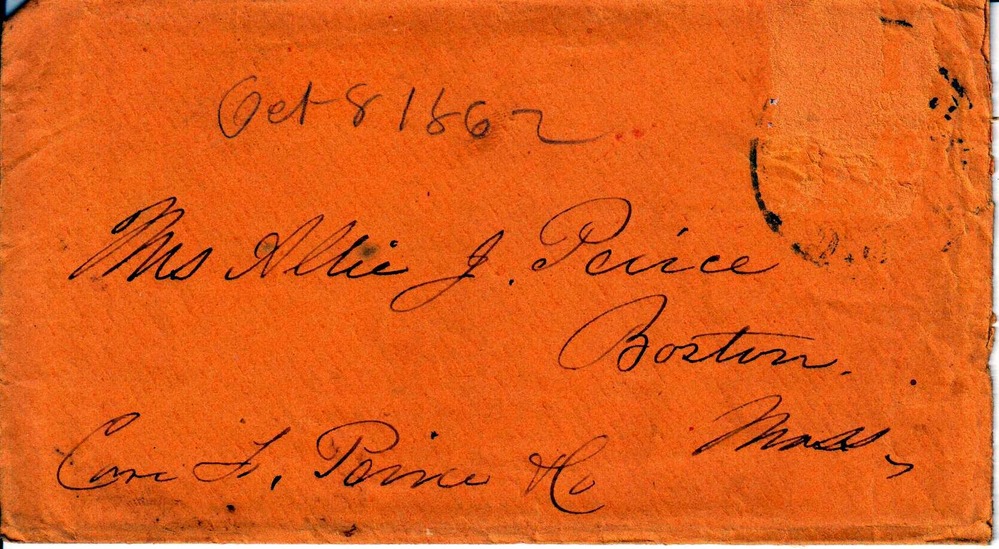 Oct 8 1862
Mrs Allie J. Peirce
Boston.
Mass,
Care F. Peirce & Co